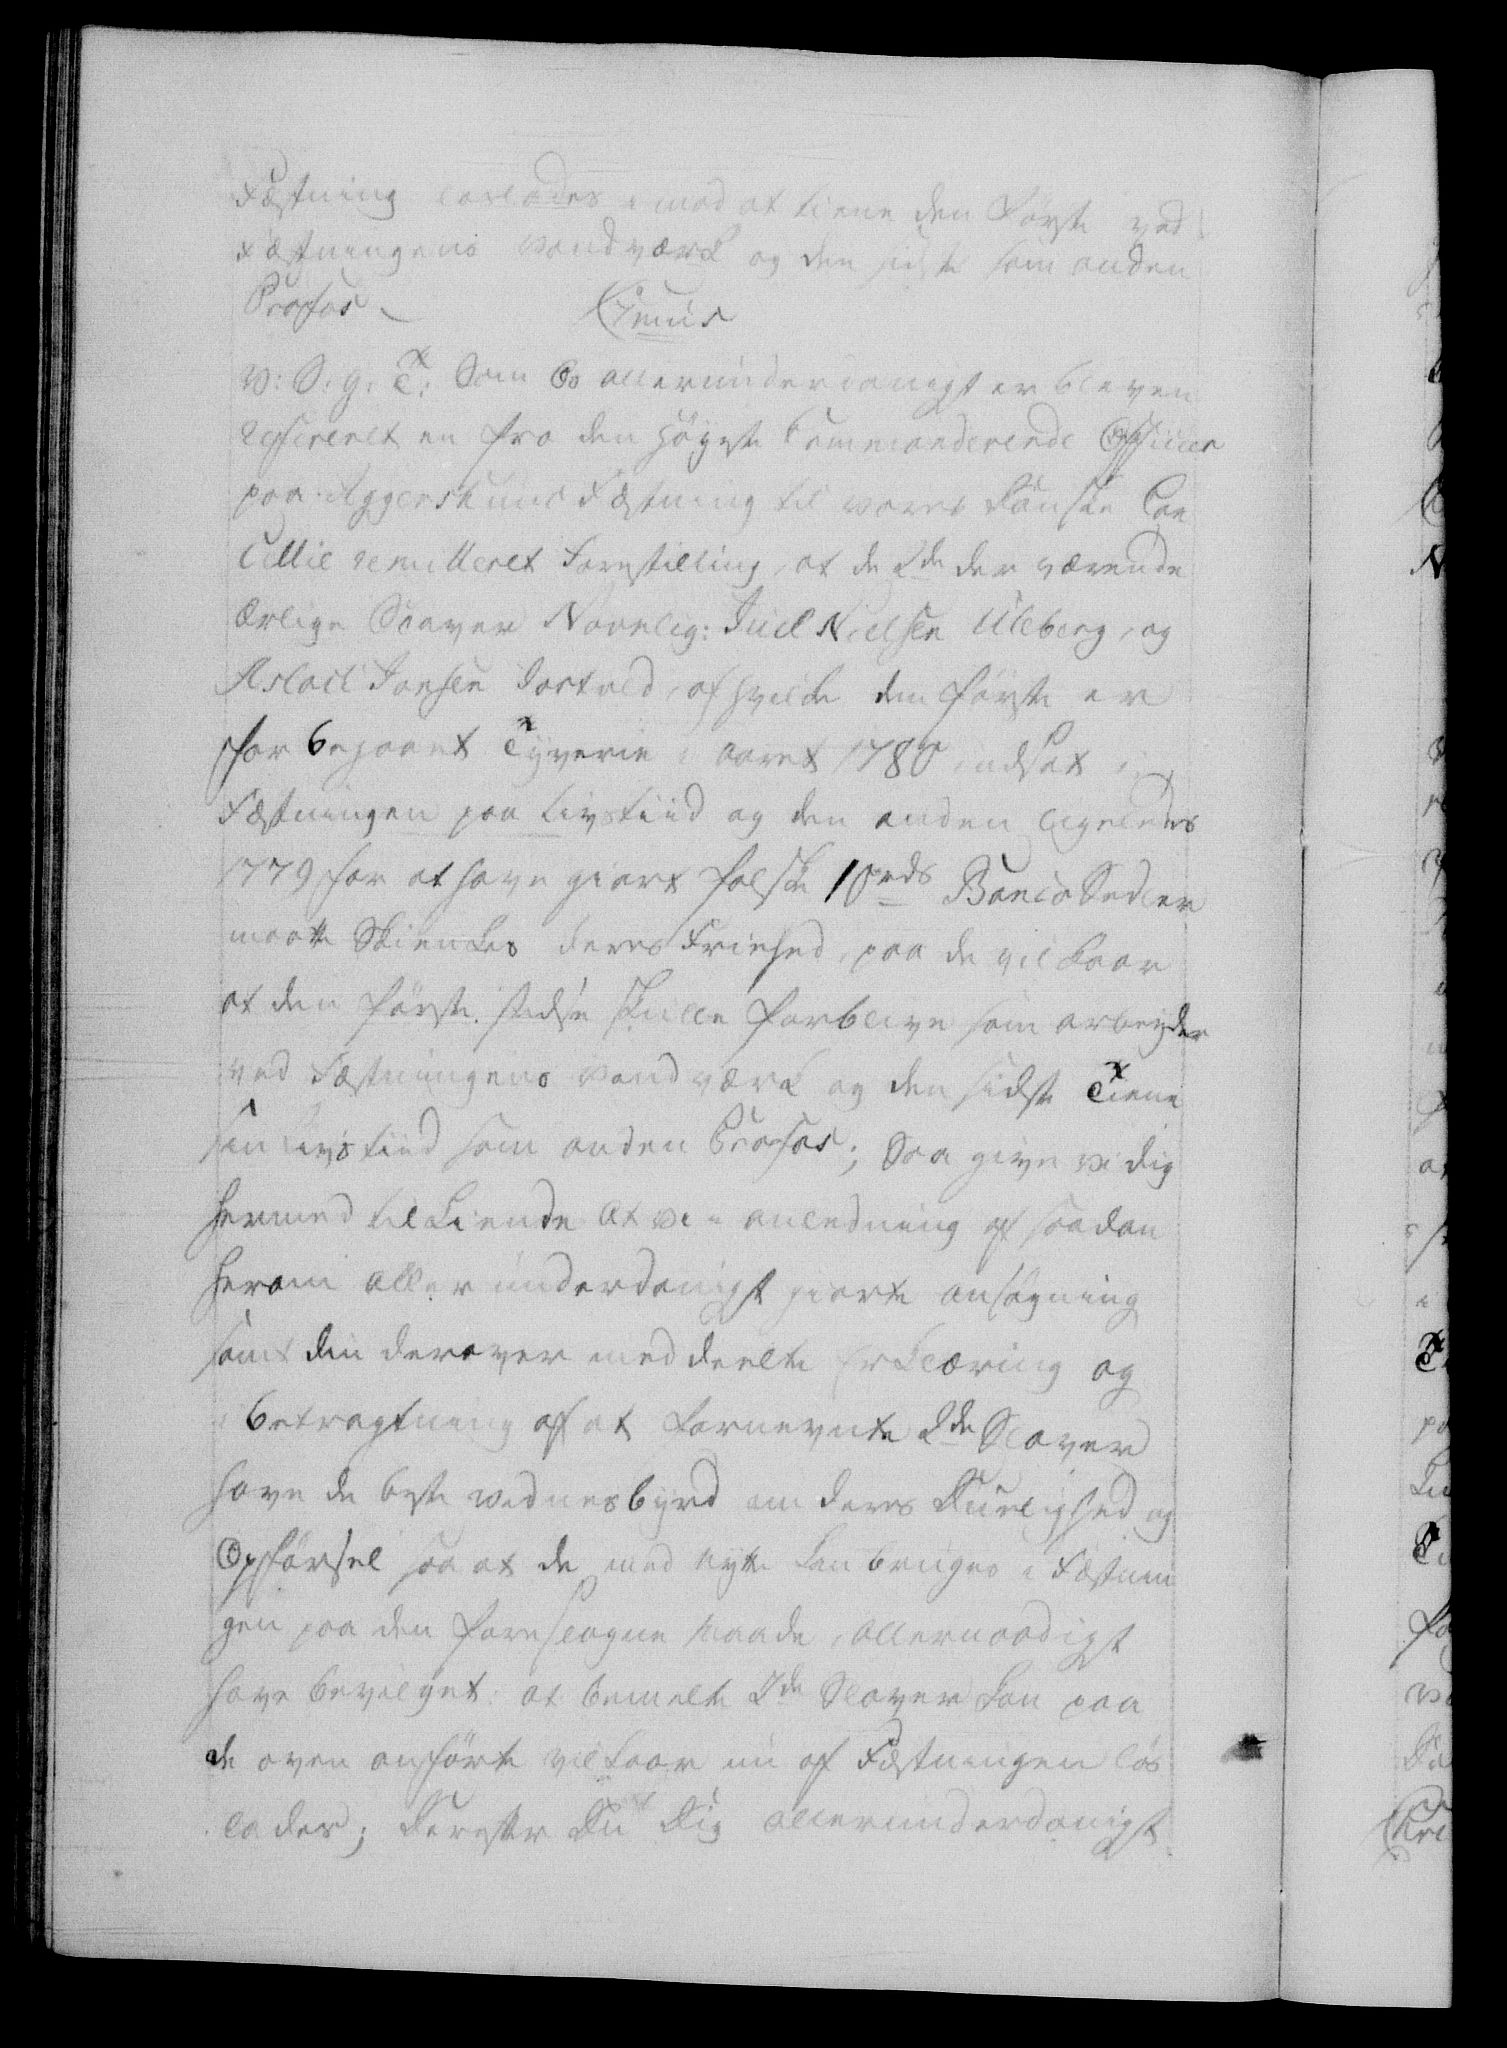 Fæstning loslades imod at tiene den første ved
Fæstningens Vandværk og den sidste som anden
Profos
V: S: G: T: Som Os allerunderdanigst er bleven
refereret en fra den høyste Commanderende Officier
paa Aggershuus Fæstning til vores danske Can
cellie remitteret Forestilling, at de 2de der værende
ærlige Slaver Navnlig: Juel Nielsen Uleberg, og
Aslach Jansen Jortveld, af hvilke den første er
for begaaet Tyverie i aaret 1780 indsat i
Fæstningen paa Livstiid og den anden ligeledes
1779 for at have giort falske 1 rds Banco Sedler
maatte Skienkes deres Friehed, paa de vilkaar
at den første stedse skulle forblive som arbeyder
ved Fæstningens Vandværk og den sidste Tiene
sin Livstiid som anden Profos; Saa give vi dig
hermed tilkiende At vi i anledning af saadan
herom allerunderdanigst giorte ansøgning
samt din derover meddeelte Erklæring og
i betragtning af at fornevnte 2de Slaver
have de beste vidnesbyrd om deres Duelighed og
Opførsel saa at de med nytte kan bruges i Fæstnin
gen paa den foreslagne Maade, allernaadigst
have bevilget: at bemelte 2de Slaver kan paa
de oven anførte vilkaar nu af Fæstningen løs
lades; Derefter Du Dig allerunderdanigst